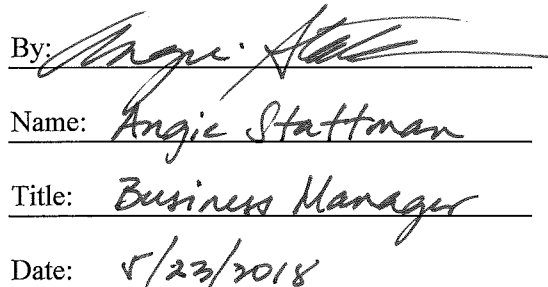 By: Angie
Name: Angie Stattman
Title: Business Manager
Date: 5/23/2018